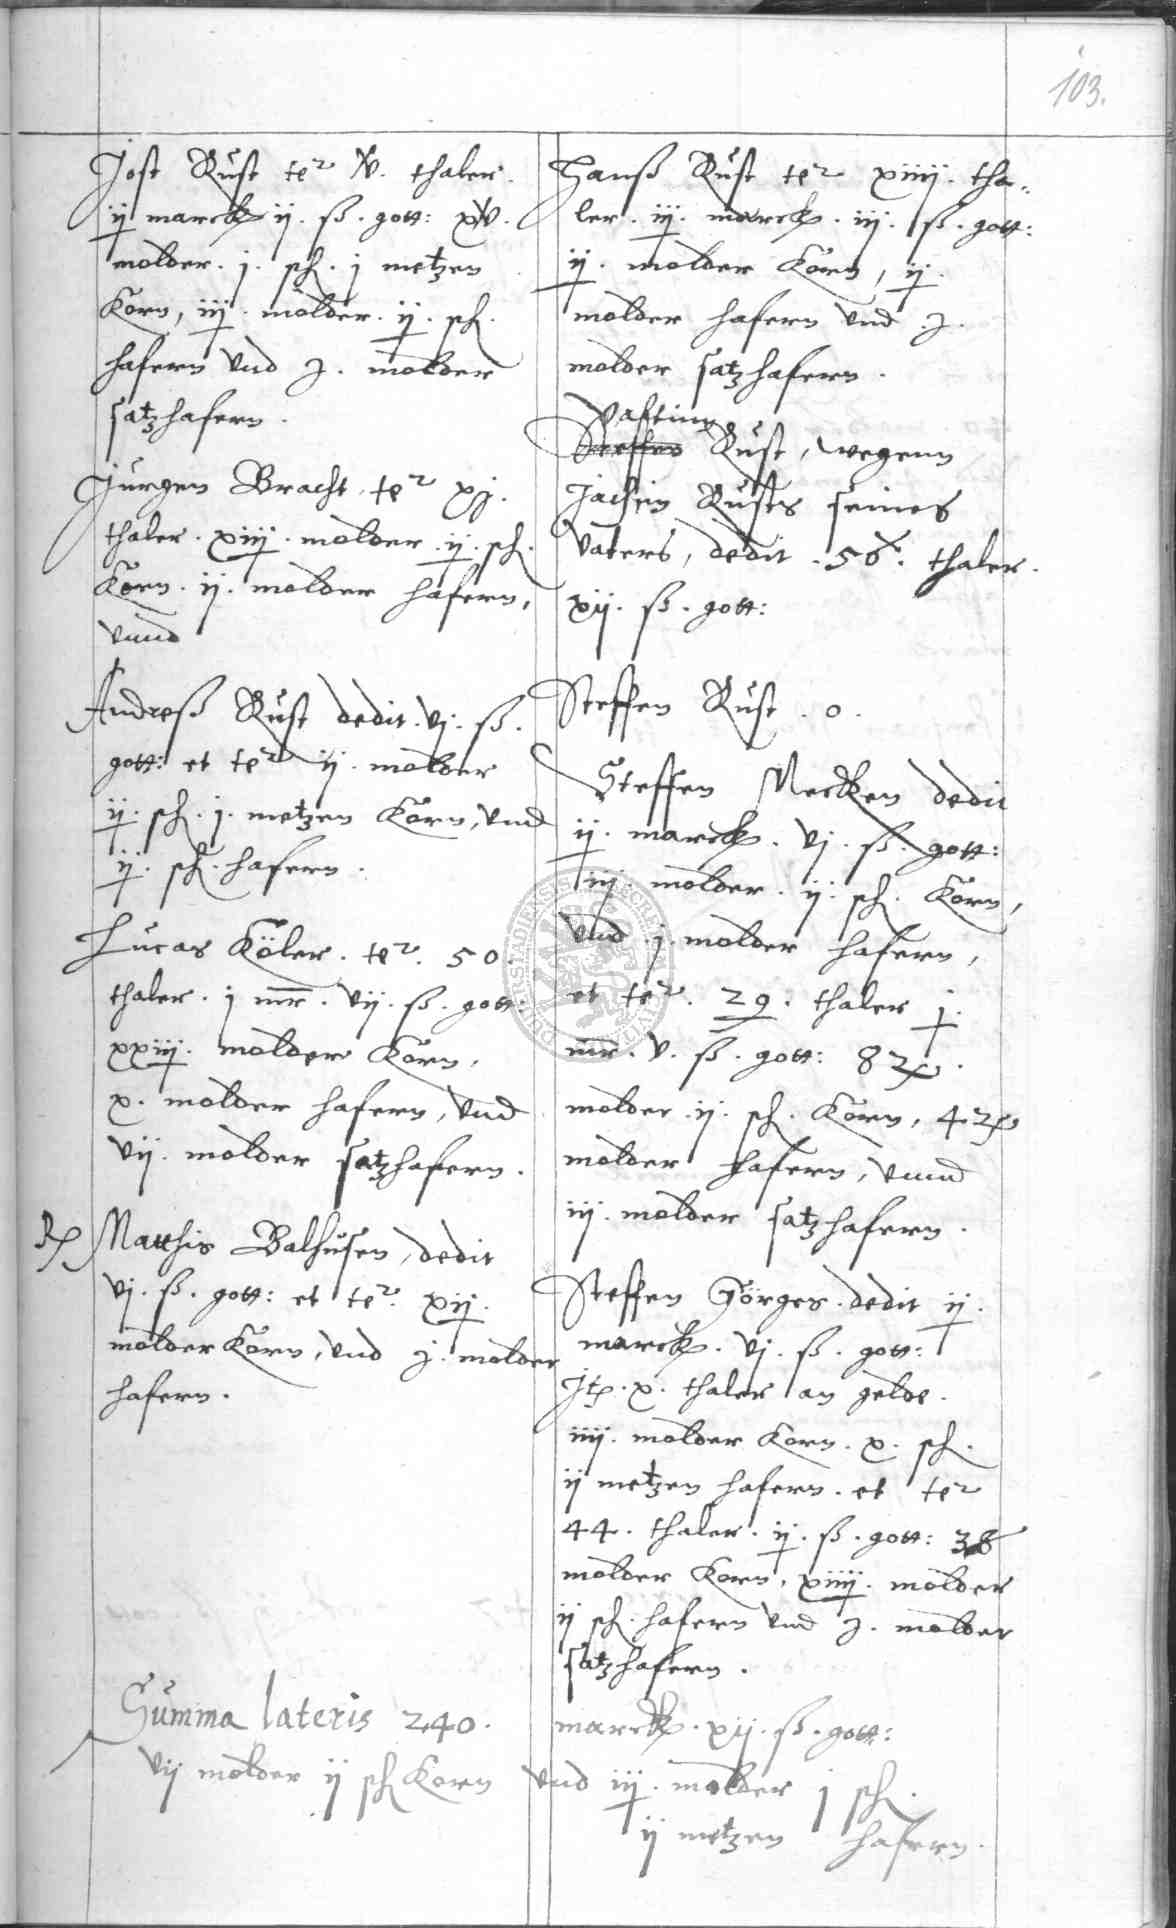 103.
Jost Rust te² x. thaler.
ij marck ij. ß. gott: xv.
molder. j. sch. j metzen
Korn, iij. molder. ij. sch.
hafern Vnd j. molder
satzhafern.
Jurgen Bracht, te² xj.
thaler. xiij. molder. ij. sch.
Korn. ij. molder hafern,
Vnnd
Andreß Rust dedit. vj. ß.
gott: et te² ij. molder
ij. sch. j. metzen Korn, Vnd
ij. sch. hafern.
Lucas Köler. te². 50.
thaler. j mr. vij. ß. gott:
xxiij. molder Korn,
x. molder hafern, Vnd
vij. molder satzhafern.
Matthis Balhusen, dedit
vj. ß. gott: et te². xij.
molder Korn, Vnd j. molder
hafern.
Hanß Rust te² xiiij. tha-
ler. iij. marck. iij. ß. gott:
ij. molder Korn, ij.
molder hafern Vnd j.
molder satzhafern.
Valtin
Steffen Rust, wegenn
Jachim Rusts seines
Vaters, dedit. 50. thaler.
xij. ß. gott:
Steffen Rust. 0.
Steffen Mecken dedit
ij. marck. vj. ß. gott:
iij. molder. ij. sch. Korn,
Vnd j. molder hafern,
et te². 29. thaler j.
mr. v. ß. gott: 82
molder. ij. sch. Korn, 42
molder hafern, Vnnd
iij. molder satzhafern.
Steffen Görges. dedit ij.
marck. vj. ß. gott:
Jt. x. thaler an gelde.
iiij. molder Korn. x. sch.
ij metzen hafern. et te²
44. thaler. ij. ß. gott: 38
molder Korn, xiiij. molder
ij sch. hafern Vnd j. molder
satzhafern.
Summa lateris 240. marck. xij. ß. gott:
vij molder ij sch Korn Vnd iij. molder j sch.
ij metzen hafern.